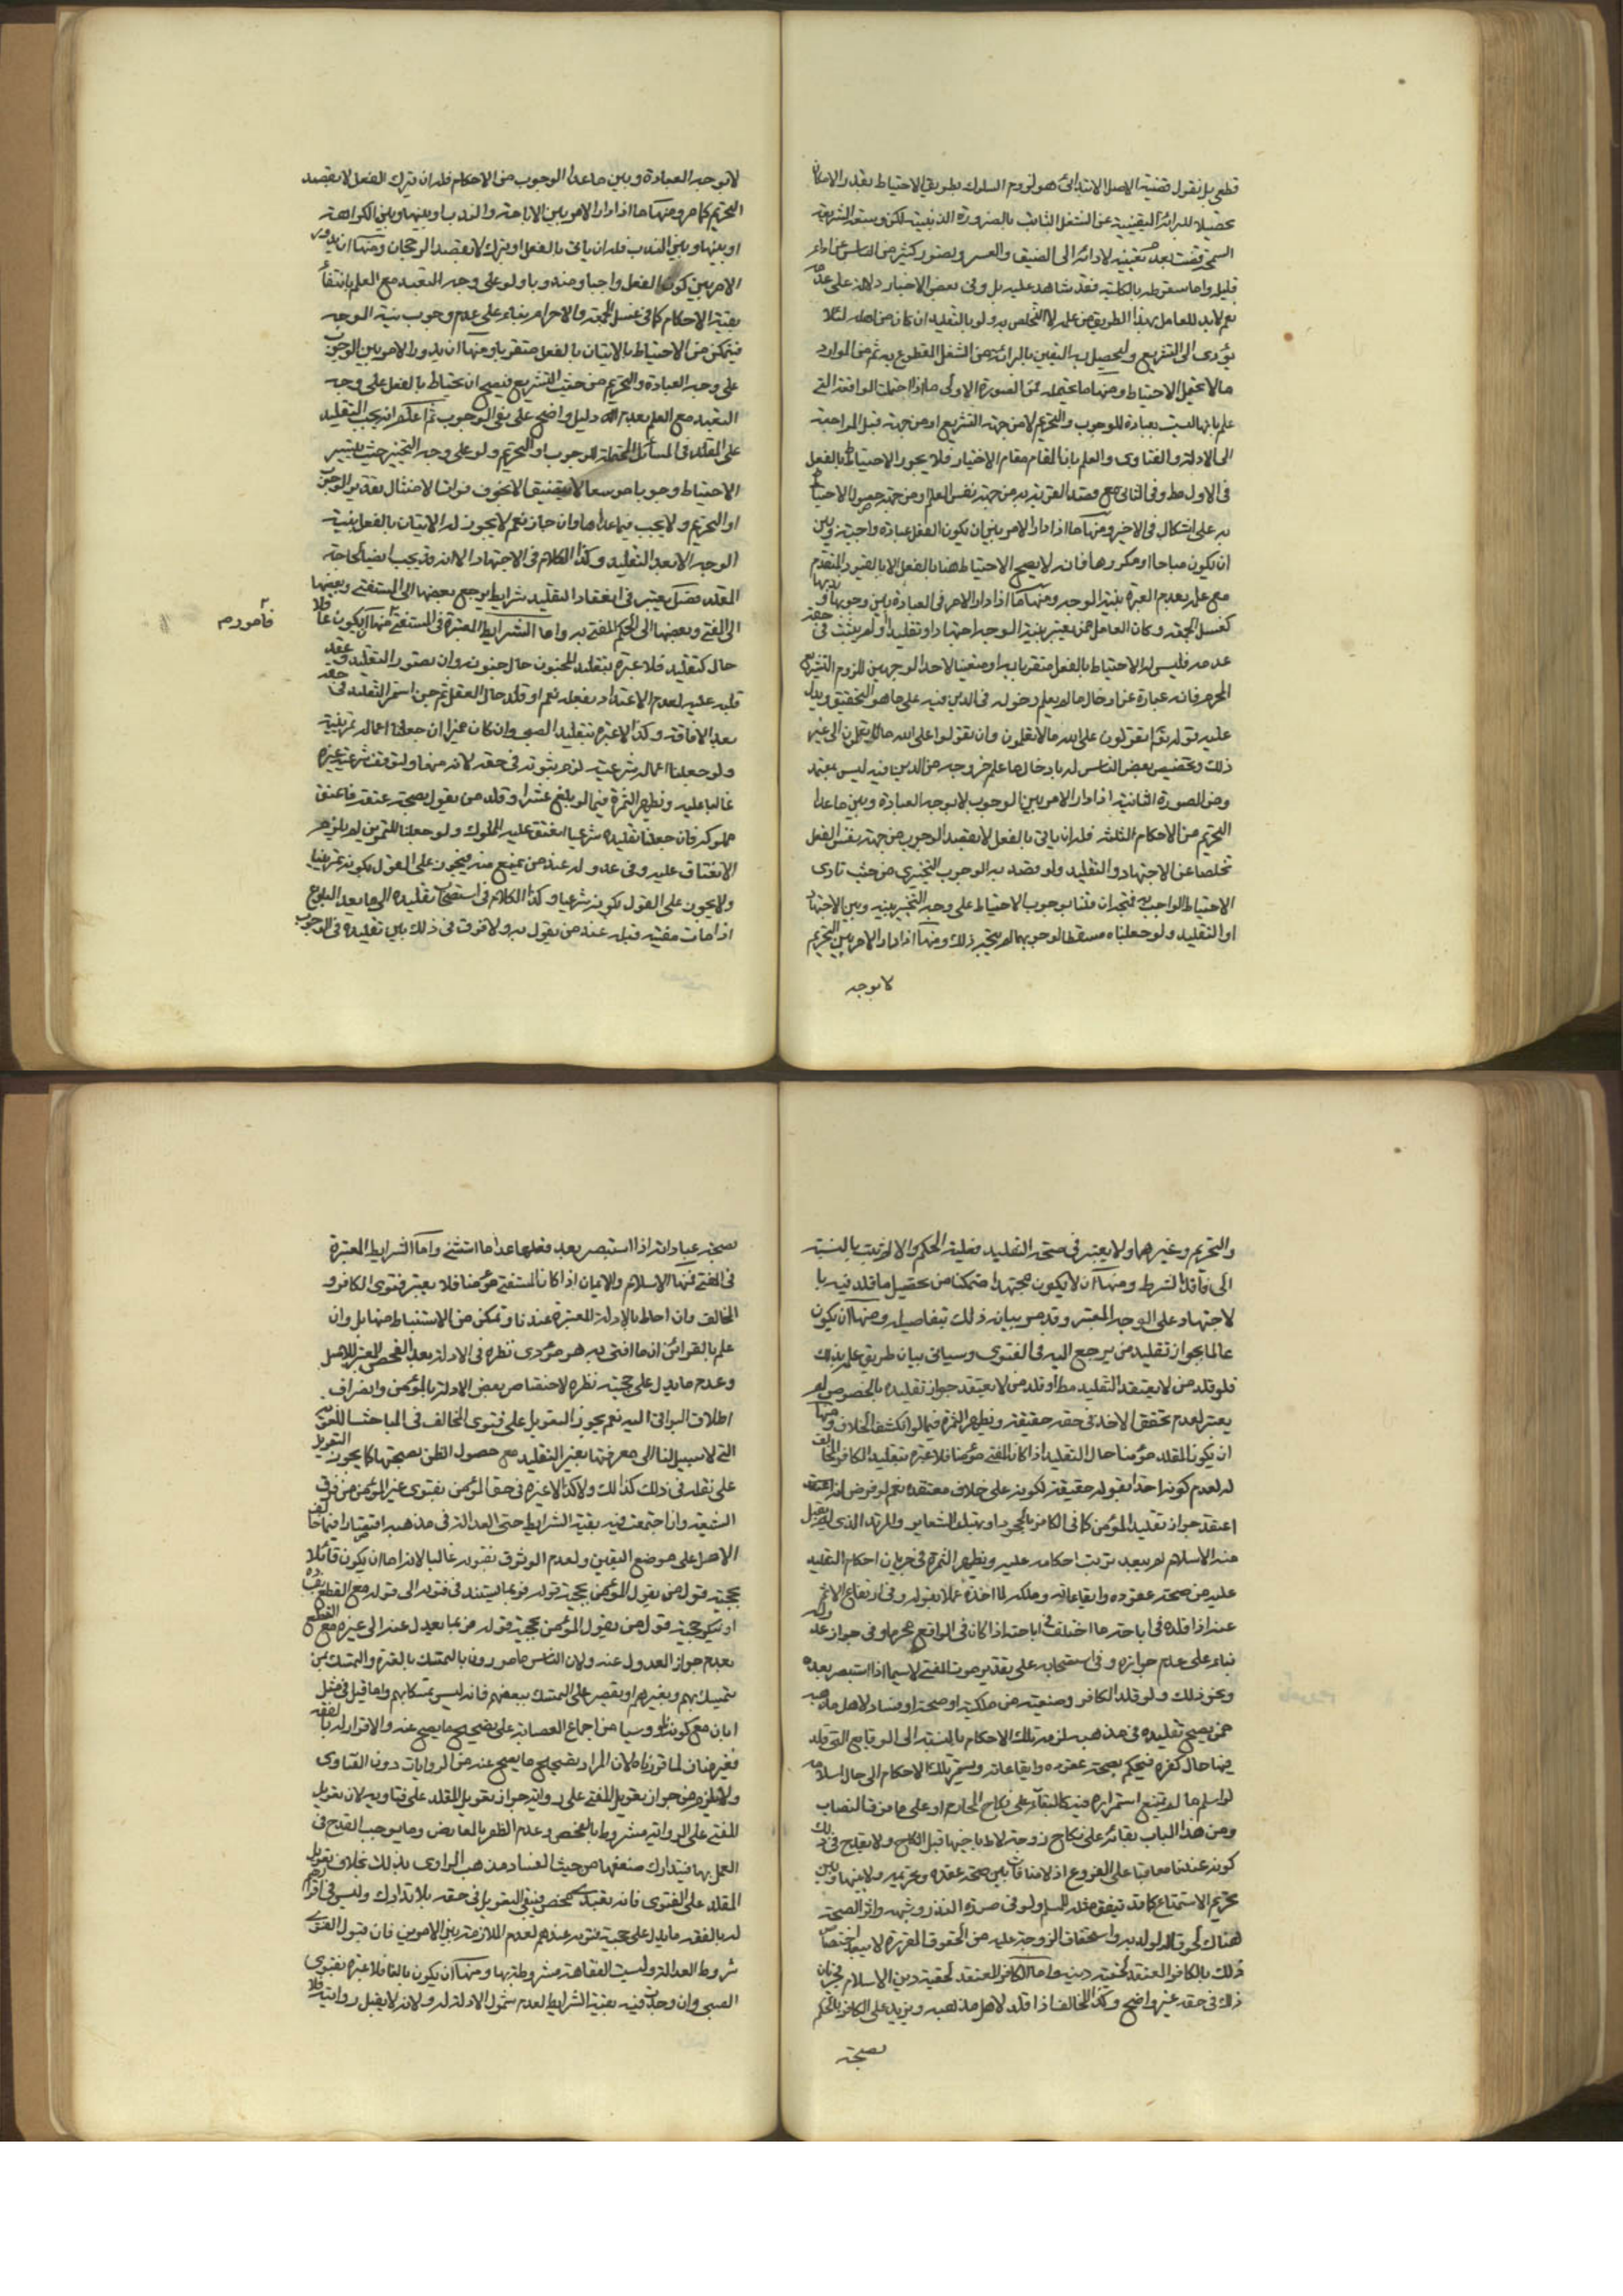 قطعي بل نقول قضية الاصل الابتدائي هو لزوم السلوك بطريق الاحتياط بقدر الامكان
تحصيلا للبرائة اليقينية عن الشغل الثابت بالضرورة الدينية لكن وسعة الشريعة
السمحة قضت بعدم تعيينه لادائه الى الضيق والعسر وقصور كثير من الناس عن اداء
قليله واما سقوطه بالكلية فقد شاهد عليه بل وفي بعض الاخبار دلالة على عدمه
نعم لابد للعامل بهذا الطريق من علمه التخلص به ولو بالتقليد ان كان من اهله لئلا
يؤدى الى التشريع وليحصل به اليقين بالبرائة من الشغل المقطوع به ثم من الموارد
مالا يحتمل الاحتياط ومنها ما يحتمله فمن الصورة الاولى ما اذا احتملت الواقعة التي
علم بانها ليست بعبادة للوجوب والتحريم لا من جهة التشريع او من جهة قبل المراجعة
الى الادلة والفتاوى والعلم بان المقام مقام الاختيار فلا يجوز الاحتياط بالفعل
في الاول مط وفي الثاني مع قصد القربة به من جهة نفس العلم او من جهة حصول الاحتياط
به على اشكال في الاخير ومنها ما اذا دار الامر بين ان يكون الفعل عبادة واجبة وبين
ان يكون مباحا او مكروها فانه لا يصح الاحتياط هنا بالفعل الا بالقيود المتقدم
مع علمه بعدم العبرة بنية الوجه ومنها ما اذا دار الامر في العبادة بين وجوبها وندبها
كغسل الجمعة وكان العامل ممن يعتبر نية الوجه اجتهادا او تقليدا او لم يثبت في حقه
عدمه فليس له الاحتياط بالفعل متقربا به او متعينا لاحد الوجهين للزوم التشريع
المحرم فانه عبارة عن ادخال ما لم يعلم دخوله في الدين فيه على ما هو التحقيق ويدل
عليه قوله تع اتقولون على الله ما لا تعلمون وان تقولوا على الله ما لا تعلمون الى غير
ذلك وتخصيص بعض الناس له بادخال ما علم خروجه من الدين فيه ليس بمعتمد
ومن الصورة الثانية اذا دار الامر بين الوجوب لا بوجه العبادة وبين ما عدا
التحريم من الاحكام الثلثة فله ان ياتي بالفعل لا بقصد الوجوب من جهة نفس الفعل
تخلصا عن الاجتهاد والتقليد ولو قصد به الوجوب التخييري من حيث تادى
الاحتياط الواجب به فيتجه ان قلنا بوجوب الاحتياط على وجه التخيير بينه وبين الاجتهاد
او التقليد ولو جعلناه مسقطا لوجوبهما لم يتجه ذلك ومنها اذا دار الامر بين التحريم
لا بوجه
لا بوجه العبادة وبين ما عدا الوجوب من الاحكام فله ان يترك الفعل لا بقصد
التحريم كما مر ومنها ما اذا دار الامر بين الاباحة والندب او بينها وبين الكراهة
او بينها وبين الندب فله ان ياتي بالفعل او يترك لا بقصد الرجحان ومنها ان يدور
الامر بين كون الفعل واجبا ومندوبا ولو على وجه التعبد مع العلم بانتفاء
بقية الاحكام كما في غسل الجمعة والاحرام بناء على عدم وجوب نية الوجه
فيتمكن من الاحتياط بالاتيان بالفعل متقربا ومنها ان يدور الامر بين الوجوب
على وجه العبادة والتحريم من حيث التشريع فيصح ان يحتاط بالفعل على وجه
التعبد مع العلم بعدم دليل واضح على نفي الوجوب ثم اعلم انه يجب التقليد
على المقلد في المسائل المحتملة للوجوب او التحريم ولو على وجه التخيير حيث يتيسر
الاحتياط وجوبا موسعا لا يتضيق الا بخوف فوات الامتثال بتقدير الوجوب
او التحريم ولا يجب فيما عداها وان جاز نعم لا يجوز له الاتيان بالفعل بنية
الوجه الا بعد التقليد وكذا الكلام في الاجتهاد الا انه قد يجب ايضا لحاجة
المقلد فصل يعتبر في انعقاد التقليد شرايط يرجع بعضها الى المستفتي وبعضها
الى المفتي وبعضها الى الحكم المفتى به واما الشرايط المعتبرة في المستفتي فمنها ان يكون عاقلا
حال كتقليده فلا عبرة بتقليد المجنون حال جنونه وان تصور التقليد وعقد
قلبه عليه لعدم الاعتداد بفعله نعم لو قلد حال العقل ثم جن استمر التقليد في حقه
بعد الافاقة وكذا لا عبرة بتقليد الصبي وان كان مميزا ان جعلنا اعماله تمرينية
ولو جعلنا اعماله شرعية لزم ثبوته في حقه لانه منها ولتوقف شرعية غيره
غالبا عليه وتظهر الثمرة فيما لو بلغ عشرا وقلد من يقول بصحة عتقه فاعتق
مملوكه فان جعلنا تقليده شرعيا انعتق عليه المملوك ولو جعلنا للتمرين لم يلزم
الانعتاق عليه وفي عدوله عند من يمنع منه فيجوز على القول بكونه تمرينيا
ولا يجوز على القول بكونه شرعيا وكذا الكلام في استصحاب تقليده الى ما بعد البلوغ
اذا مات مفتيه قبله عند من يقول به ولا فرق في ذلك بين تقليده في الوجوب
والتحريم وغيرهما ولا يعتبر في صحة التقليد فعلية الحكم والا لم يثبت بالنسبة
الى فاقد الشرط ومنها ان لا يكون مجتهدا متمكنا من تحصيل ما قلد فيه با
لاجتهاد على الوجه المعتبر وقد مر بيان ذلك بتفاصيله ومنها ان يكون
عالما بجواز تقليد من يرجع اليه في الفتوى وسياتي بيان طريق علمه بذلك
فلو قلد من لا يعتقد التقليد مط او قلد من لا يعتقد جواز تقليده بالخصوص لم
يعتبر لعدم تحقق الاخذ في حقه حقيقة وتظهر الثمرة فيما لو انكشف الخلاف ومنها
ان يكون المقلد مؤمنا حال التقليد اذا كان المفتي مؤمنا فلا عبرة بتقليد الكافر المخالف
له لعدم كونه اخذا بقوله حقيقة لكونه على خلاف معتقده نعم لو فرض انه اعتقد
اعتقد جواز تقليد المؤمن كما في الكافر بالجحود او بهتك الشعاير والمرتد الذي لم يقبل
منه الاسلام لم يبعد ترتب احكامه عليه ويظهر الثمرة في جريان احكام التقليد
عليه من صحة عقوده وايقاعاته وملكه لما اخذه عملا بقوله وفي ارتفاع الاثم
عنه اذا قلده في اباحة ما اختلف في اباحته اذا كان في الواقع محرما وفي جواز عدوله
بناء على عدم جوازه وفي استصحابه على تقدير موت المفتي لا سيما اذا استبصر بعده
ونحو ذلك ولو قلد الكافر وصنعته من ملكية او صحة او فساد لاهل مذهبه
ممن يصح تقليده في مذهبه لزمه تلك الاحكام بالنسبة الى الوقايع التي قلد
فيها حال كفره فيحكم بصحة عقوده وايقاعاته ويستمر تلك الاحكام الى حال اسلامه
لو اسلم ما لم يمنع استمراره فيه كالبقاء على نكاح المحارم او على ما فوق النصاب
ومن هذا الباب بقائه على نكاح زوجة لاط باخيها قبل النكاح ولا يقدح في ذلك
كونه عندنا معاقبا على الفروع اذ لا منافات بين صحة عقده وتحريمه ولا بينها وبين
تحريم الاستمتاع كما قد يتفق مثله للمسلم ولو في صورة النذر وشبهه واثر الصحة
هناك لحوق الولد به واستحقاق الزوجة عليه من الحقوق المقررة لا يبعد اختصاص
ذلك بالكافر المعتقد لحقية دينه واما الكافر المعتقد لحقية دين الاسلام فجريان
ذلك في حقه غير واضح وكذا المخالف اذا قلد لاهل مذهبه ويزيد على الكافر بالحكم
بصحة
بصحة عباداته اذا استبصر بعد فعلها عدا ما استثني واما الشرايط المعتبرة
في المفتي فمنها الاسلام والايمان اذا كان المستفتي مؤمنا فلا يعتبر فتوى الكافر و
المخالف وان احاط بالادلة المعتبرة عندنا وتمكن من الاستنباط منها بل وان
علم بالقرائن ان ما افتى به هو مؤدى نظره في الادلة بعد الفحص المعتبر للاصل
وعدم ما يدل على حجية نظره لاختصاص بعض الادلة بالمؤمن وانصراف
اطلاق البواقي اليه نعم يجوز التعويل على فتوى المخالف في المباحث اللغوية
التي لا سبيل لنا الى معرفتها بغير التقليد مع حصول الظن بصحتها كما يجوز التعويل
على نقله في ذلك كذلك ولا كذا لا عبرة في حق المؤمن بفتوى غير المؤمن من فرق
الشيعة وان اجتمعت فيه بقية الشرايط حتى العدالة في مذهبه اقتصارا فيما خالف
الاصل على موضع اليقين ولعدم الوثوق بقوله غالبا لانه اما ان يكون قائلا
بحجية قول من يقول المؤمن بحجية قوله فربما يستند في فتوه الى قوله مع القطع بفساده
او ينكر حجية قول من يقول المؤمن بحجية قوله فربما يعدل عنه الى غيره مع القطع
بعدم جواز العدول عنه ولان الناس مامورون بالتمسك بالعترة والتمسك بمن
يتمسك بهم وبغيرهم او يقصر على التمسك ببعضهم فانه ليس تمسكا بهم واما قيل في مثل
ابان مع كونه ناووسيا من اجماع العصابة على تصحيح ما يصح عنه والاقرار له بالفقه
فغير مناف لما قررنا لان المراد تصحيح ما يصح عنه من الروايات دون الفتاوى
ولا يلزم من جواز تعويل المفتي على روايته جواز تعويل المقلد على فتاويه لان تعويل
المفتي على الرواية مشروط بالفحص وعدم الظفر بالمعارض وما يوجب القدح في
العمل بها فيتدارك ضعفها من حيث الفساد مذهب الراوي بذلك بخلاف تعويل
المقلد على الفتوى فانه تعبدى محض فيبقى التعويل في حقه بلا تدارك وليس في اقرارهم
له بالفقه ما يدل على حجية فتوه عندهم لعدم الملازمة بين الامرين فان قبول الفتوى
شروط العدالة وليست الفقاهة مشروطة بها ومنها ان يكون بالغا فلا عبرة بفتوى
الصبي وان وجدت فيه بقية الشرايط لعدم شمول الادلة له ولانه لا يقبل روايته فلا